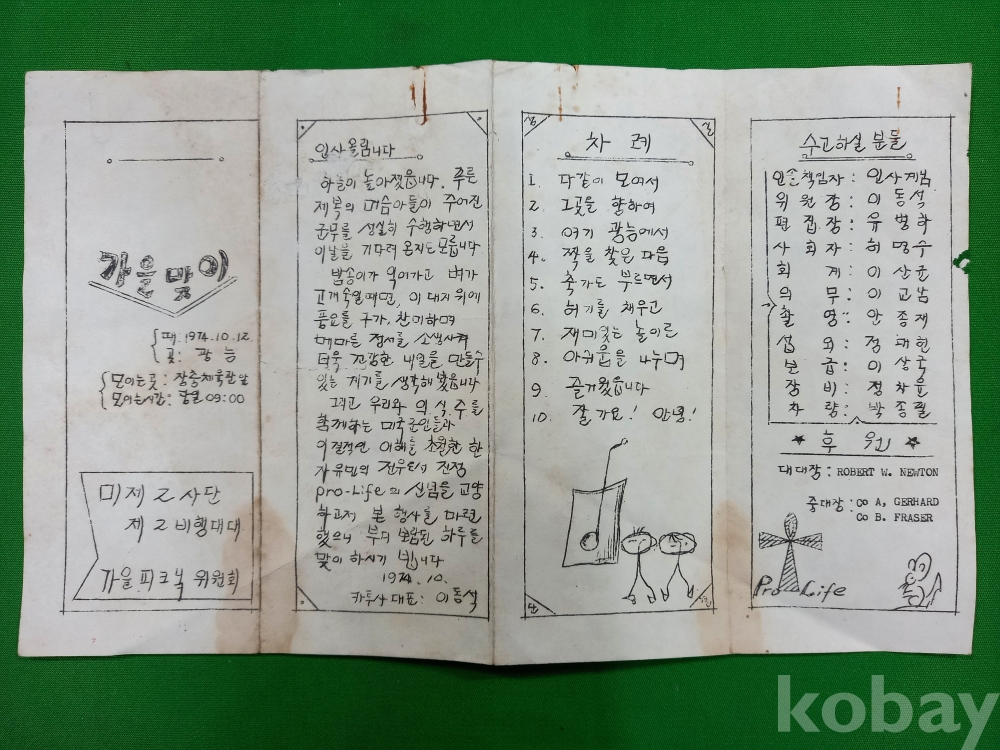 가을맞이
때. 1974. 10. 12.
곳: 광능
모이는곳: 장충체육관앞
모이는시간: 당일 09:00
미제2사단
제2비행대대
가을피크닉 위원회
인사올림니다
하늘이 높아졌읍니다. 푸른
제복의 머슴아들이 주어진
군무를 성실히 수행하면서
이날을 기다려 온지도 모릅니다
밤송이가 익어가고 벼가
고개숙일때면, 이 대지위에
풍요를 구가, 찬미하며
메마른 정서를 소생시켜
더욱 건강한 내일을 만들수
있는 계기를 생각해 봤읍니다
그리고 우리와 의.식.주를
함께하는 미국군인들과
이질적인 이해를 초월한 한
자유민의 전우로서 진정
pro-Life의 신념을 교양
하고저 본 행사를 마련
했으니 부디 보람된 하루를
맞이 하시기 빕니다
1974. 10.
카투사 대표: 이동석
차례
1. 다같이 모여서
2. 그곳을 향하여
3. 여기 광능에서
4. 짝을 찾은 다음
5. 축가도 부르면서
6. 허기를 채우고
7. 재미있는 놀이로
8. 아쉬움을 나누며
9. 즐거웠읍니다
10. 잘가요! 안녕!
수고하실 분들
인솔책임자: 인사계님
위원장: 이동석
편집장: 유병학
사회자: 허명수
회계: 이상균
의무: 이교남
촬영: 안종재
섭외: 정태헌
보급: 이상국
장비: 정차윤
차량: 박종필
후원
대대장: ROBERT W. NEWTON
중대장: CO A, GERHARD
CO B. FRASER
Pro Life
kobay